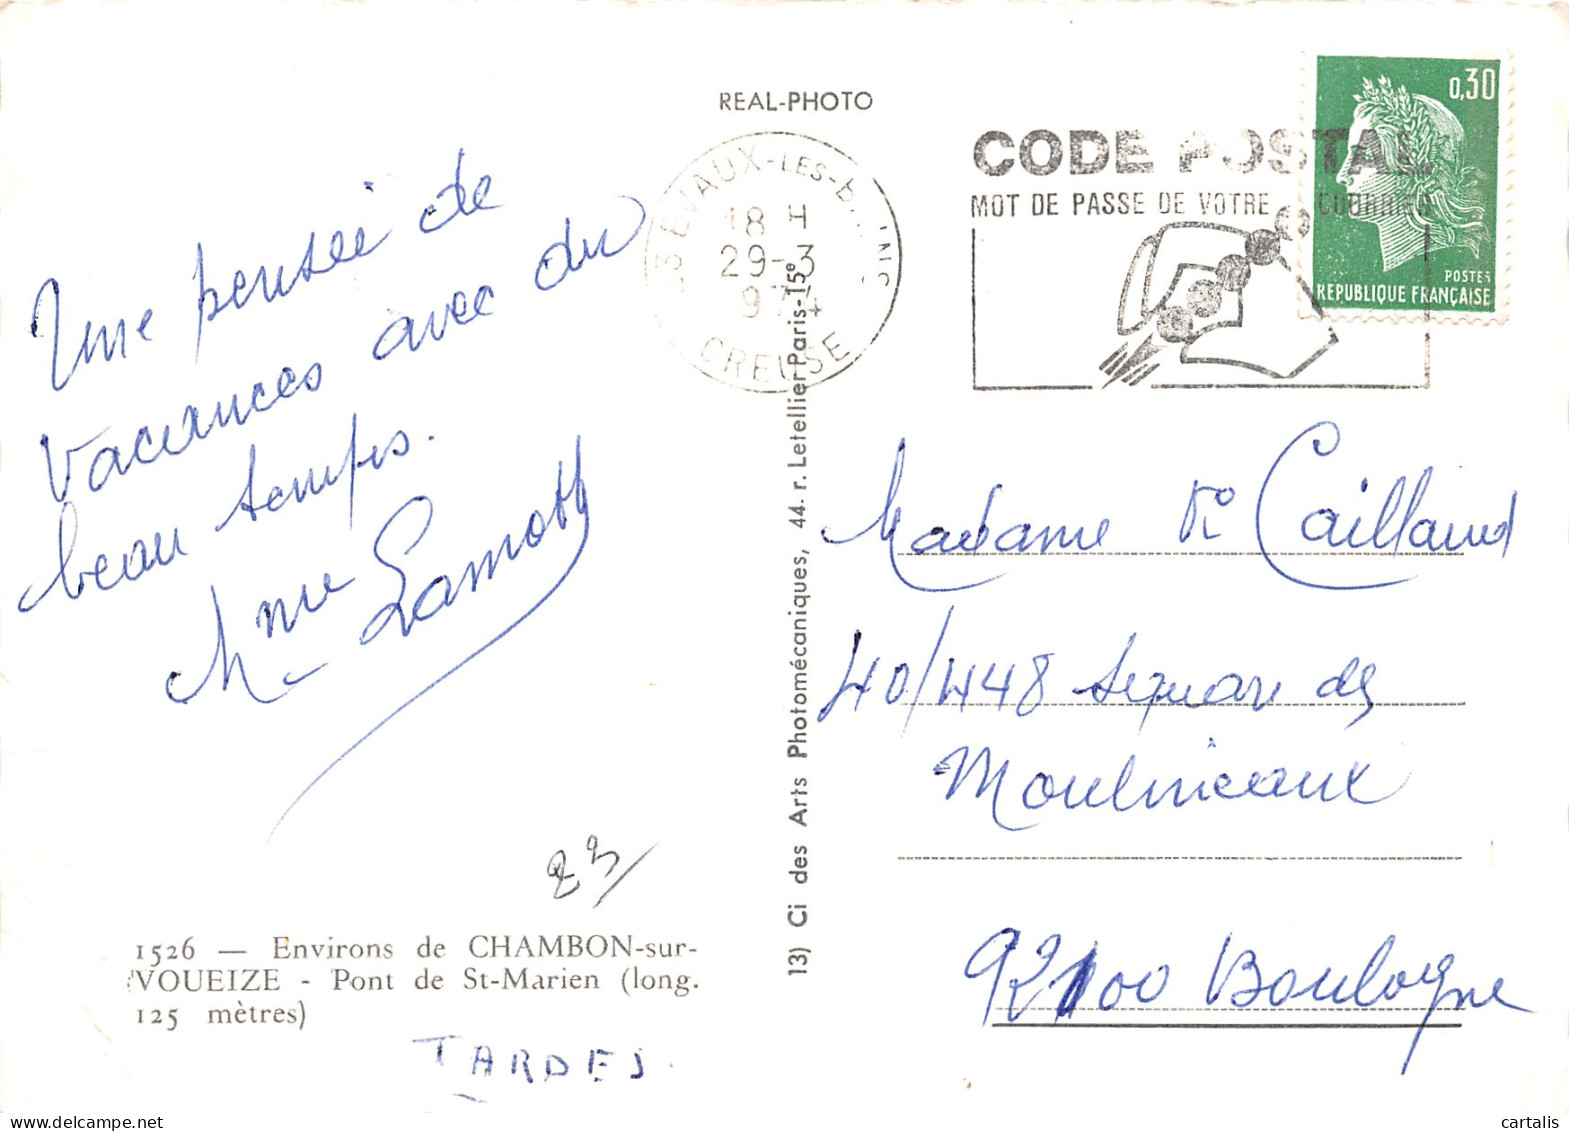 REAL-PHOTO
Une pensée de
vacances avec du
beau temps.
Mme Lamoth
23
1526 — Environs de CHAMBON-sur-
VOUEIZE - Pont de St-Marien (long.
125 mètres)
TARDES
13) Ci des Arts Photomécaniques, 44. r. Letellier-Paris-15e
23 EVAUX-LES-BAINS
18 H
29-3
1974
CREUSE
CODE POSTAL
MOT DE PASSE DE VOTRE COURRIER
0,30
POSTES
REPUBLIQUE FRANÇAISE
Madame Caillaud
40/448 square des
Moulineaux
92100 Boulogne
cartalis